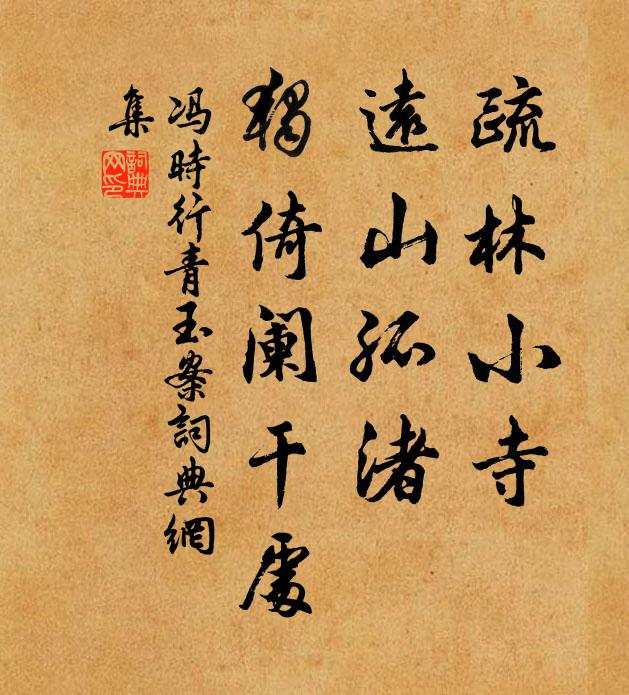 疏林小寺
遠山孤渚
獨倚闌干處
冯時行青玉案詞典網
集
詞典
网印